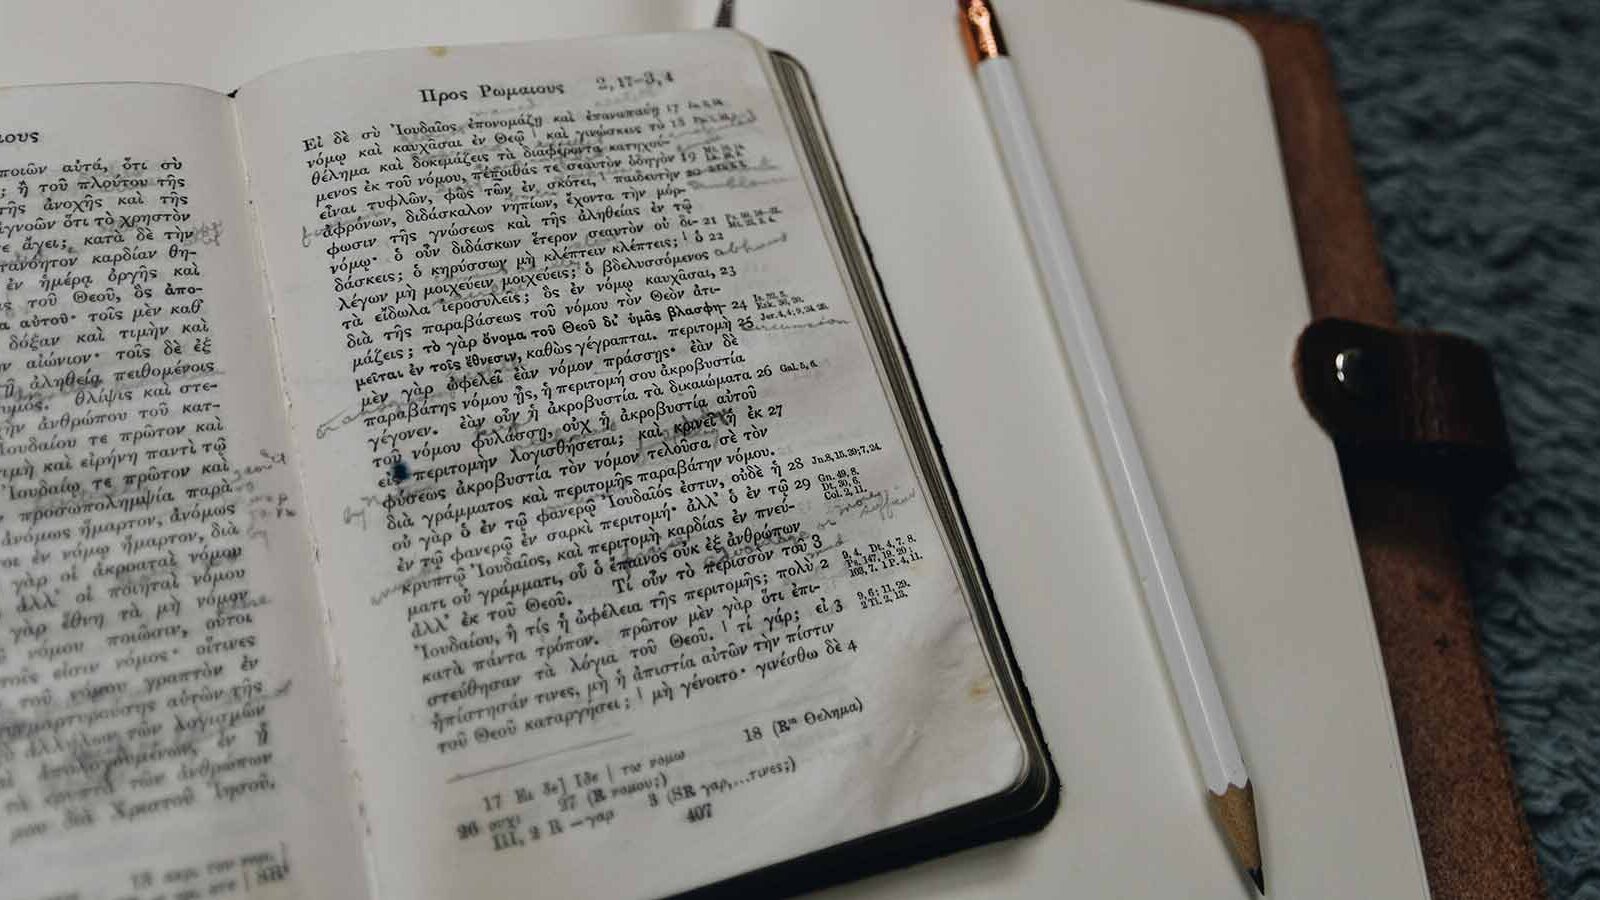 ιους
ποιῶν αὐτά, ὅτι σὺ
; ἢ τοῦ πλούτου τῆς
τῆς ἀνοχῆς καὶ τῆς
ἀγνοῶν ὅτι τὸ χρηστὸν
ε ἄγει; κατὰ δὲ τὴν
τανόητον καρδίαν θη-
ἐν ἡμέρᾳ ὀργῆς καὶ
ς τοῦ Θεοῦ, ὃς ἀπο-
α αὐτοῦ· τοῖς μὲν καθ᾽
δόξαν καὶ τιμὴν καὶ
ν αἰώνιον· τοῖς δὲ ἐξ
τῇ ἀληθείᾳ πειθομένοις
υμός. θλῖψις καὶ στε-
ὴν ἀνθρώπου τοῦ κατ-
Ἰουδαίου τε πρῶτον καὶ
τιμὴ καὶ εἰρήνη παντὶ τῷ
Ἰουδαίῳ τε πρῶτον καὶ
προσωπολημψία παρὰ
ἀνόμως ἥμαρτον, ἀνόμως
οι ἐν νόμῳ ἥμαρτον, διὰ
γὰρ οἱ ἀκροαταὶ νόμου
ἀλλ᾽ οἱ ποιηταὶ νόμου
γὰρ ἔθνη τὰ μὴ νόμον
νόμου ποιῶσιν, οὗτοι
τοῖς εἰσιν νόμος· οἵτινες
τοῦ νόμου γραπτὸν ἐν
μαρτυρούσης αὐτῶν τῆς
ἀλλήλων τῶν λογισμῶν
ἀπολογουμένων, ἐν ᾗ
τὰ κρυπτὰ τῶν ἀνθρώπων
μου διὰ Χριστοῦ Ἰησοῦ.
Προς Ρωμαιους 2,17–3,4
Εἰ δὲ σὺ Ἰουδαῖος ἐπονομάζῃ καὶ ἐπαναπαύῃ 17
νόμῳ καὶ καυχᾶσαι ἐν Θεῷ | καὶ γινώσκεις τὸ 18
θέλημα καὶ δοκιμάζεις τὰ διαφέροντα κατηχού-
μενος ἐκ τοῦ νόμου, πέποιθάς τε σεαυτὸν ὁδηγὸν 19
εἶναι τυφλῶν, φῶς τῶν ἐν σκότει, | παιδευτὴν 20
ἀφρόνων, διδάσκαλον νηπίων, ἔχοντα τὴν μόρ-
φωσιν τῆς γνώσεως καὶ τῆς ἀληθείας ἐν τῷ
νόμῳ· ὁ οὖν διδάσκων ἕτερον σεαυτὸν οὐ δι- 21
δάσκεις; ὁ κηρύσσων μὴ κλέπτειν κλέπτεις; | ὁ 22
λέγων μὴ μοιχεύειν μοιχεύεις; ὁ βδελυσσόμενος abhors
τὰ εἴδωλα ἱεροσυλεῖς; ὃς ἐν νόμῳ καυχᾶσαι, 23
διὰ τῆς παραβάσεως τοῦ νόμου τὸν Θεὸν ἀτι-
μάζεις; τὸ γὰρ ὄνομα τοῦ Θεοῦ δι᾽ ὑμᾶς βλασφη- 24
μεῖται ἐν τοῖς ἔθνεσιν, καθὼς γέγραπται. περιτομὴ 25 Jer. 4,4; 9,24.25. circumcision
μὲν γὰρ ὠφελεῖ ἐὰν νόμον πράσσῃς· ἐὰν δὲ
παραβάτης νόμου ᾖς, ἡ περιτομή σου ἀκροβυστία
γέγονεν. ἐὰν οὖν ἡ ἀκροβυστία τὰ δικαιώματα 26 Gal. 5,6.
τοῦ νόμου φυλάσσῃ, οὐχ ἡ ἀκροβυστία αὐτοῦ
εἰς περιτομὴν λογισθήσεται; καὶ κρινεῖ ἡ ἐκ 27
φύσεως ἀκροβυστία τὸν νόμον τελοῦσα σὲ τὸν
by διὰ γράμματος καὶ περιτομῆς παραβάτην νόμου.
οὐ γὰρ ὁ ἐν τῷ φανερῷ Ἰουδαῖός ἐστιν, οὐδὲ ἡ 28 Jn. 8,15.39; 7,24.
ἐν τῷ φανερῷ ἐν σαρκὶ περιτομή· ἀλλ᾽ ὁ ἐν τῷ 29 Gn. 49,8. Dt. 30,6. Col. 2,11.
κρυπτῷ Ἰουδαῖος, καὶ περιτομὴ καρδίας ἐν πνεύ-
ματι οὐ γράμματι, οὗ ὁ ἔπαινος οὐκ ἐξ ἀνθρώπων
ἀλλ᾽ ἐκ τοῦ Θεοῦ. Τί οὖν τὸ περισσὸν τοῦ 3
Ἰουδαίου, ἢ τίς ἡ ὠφέλεια τῆς περιτομῆς; πολὺ 2 9,4. Dt. 4,7.8. Ps. 147,19.20; 103,7. 1 P. 4,11.
κατὰ πάντα τρόπον. πρῶτον μὲν γὰρ ὅτι ἐπι-
στεύθησαν τὰ λόγια τοῦ Θεοῦ. | τί γάρ; εἰ 3 9,6; 11,29. 2 Ti. 2,13.
ἠπίστησάν τινες, μὴ ἡ ἀπιστία αὐτῶν τὴν πίστιν
τοῦ Θεοῦ καταργήσει; | μὴ γένοιτο· γινέσθω δὲ 4
17 Ει δε] Ιδε | τω νομω 18 (Rᵐ Θελημα)
26 ουχι 27 (R νομου;)
III, 2 R –γαρ 3 (SR γαρ,...τινες;)
407